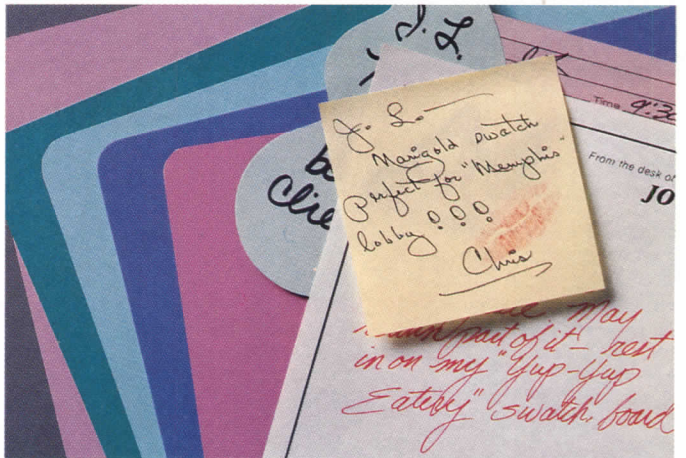 J. L.
Time 9:30
From the desk of
JO
J. L.
Marigold swatch
Perfect for "Memphis"
lobby!!!
Chris
Clie
May
part of it - rest
in on my "Yup-Yup
Eatery" swatch board